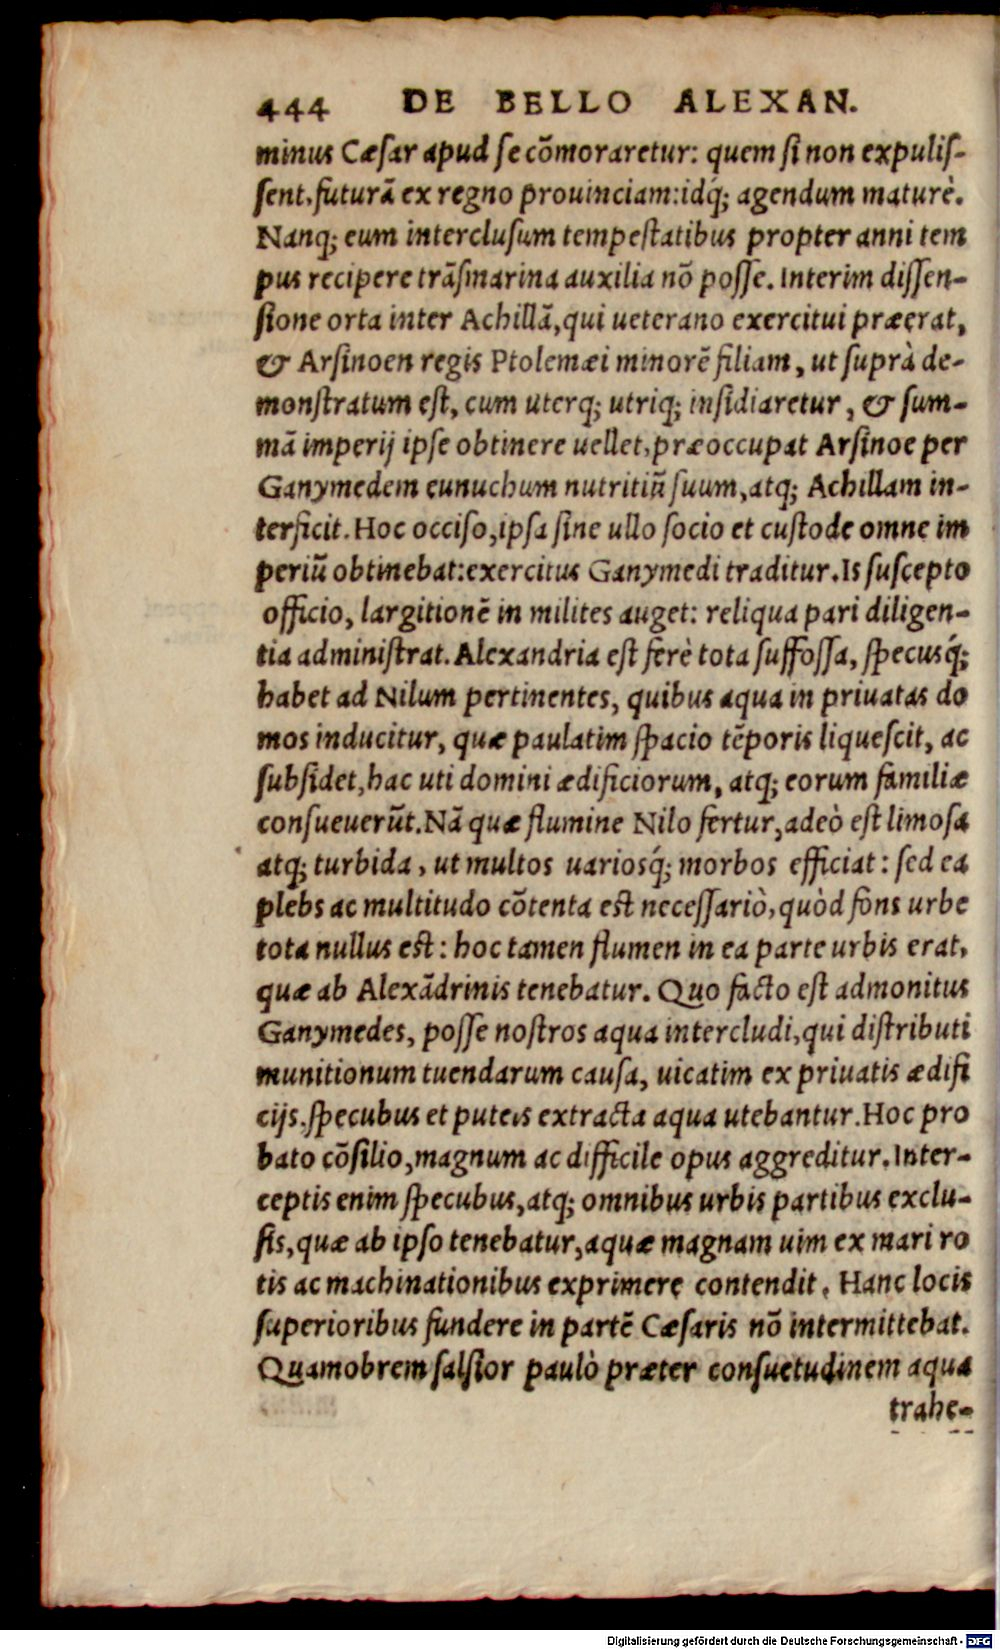 444 DE BELLO ALEXAN.
minus Cæsar apud se cõmoraretur: quem si non expulis-
sent, futurã ex regno prouinciam: idq́; agendum maturè.
Nanq; eum interclusum tempestatibus propter anni tem
pus recipere trãsmarina auxilia nõ posse. Interim dissen-
sione orta inter Achillã, qui ueterano exercitui præerat,
& Arsinoen regis Ptolemæi minorẽ filiam, ut suprà de-
monstratum est, cum uterq; utriq; insidiaretur, & sum-
mã imperij ipse obtinere uellet, præoccupat Arsinoe per
Ganymedem eunuchum nutritiũ suum, atq; Achillam in-
terficit. Hoc occiso, ipsa sine ullo socio et custode omne im
periũ obtinebat: exercitus Ganymedi traditur. Is suscepto
officio, largitionẽ in milites auget: reliqua pari diligen-
tia administrat. Alexandria est ferè tota suffossa, specusq́;
habet ad Nilum pertinentes, quibus aqua in priuatas do
mos inducitur, quæ paulatim spacio tẽporis liquescit, ac
subsidet, hac uti domini ædificiorum, atq; eorum familiæ
consueuerũt. Nã quæ flumine Nilo fertur, adeò est limosa
atq; turbida, ut multos uariosq́; morbos efficiat: sed ea
plebs ac multitudo cõtenta est necessariò, quòd fons urbe
tota nullus est: hoc tamen flumen in ea parte urbis erat,
quæ ab Alexãdrinis tenebatur. Quo facto est admonitus
Ganymedes, posse nostros aqua intercludi, qui distributi
munitionum tuendarum causa, uicatim ex priuatis ædifi
cijs, specubus et puteis extracta aqua utebantur. Hoc pro
bato cõsilio, magnum ac difficile opus aggreditur. Inter-
ceptis enim specubus, atq; omnibus urbis partibus exclu-
sis, quæ ab ipso tenebatur, aquæ magnam uim ex mari ro
tis ac machinationibus exprimere contendit. Hanc locis
superioribus fundere in partẽ Cæsaris nõ intermittebat.
Quamobrem salsior paulò præter consuetudinem aqua
trahe-
Digitalisierung gefördert durch die Deutsche Forschungsgemeinschaft - DFG